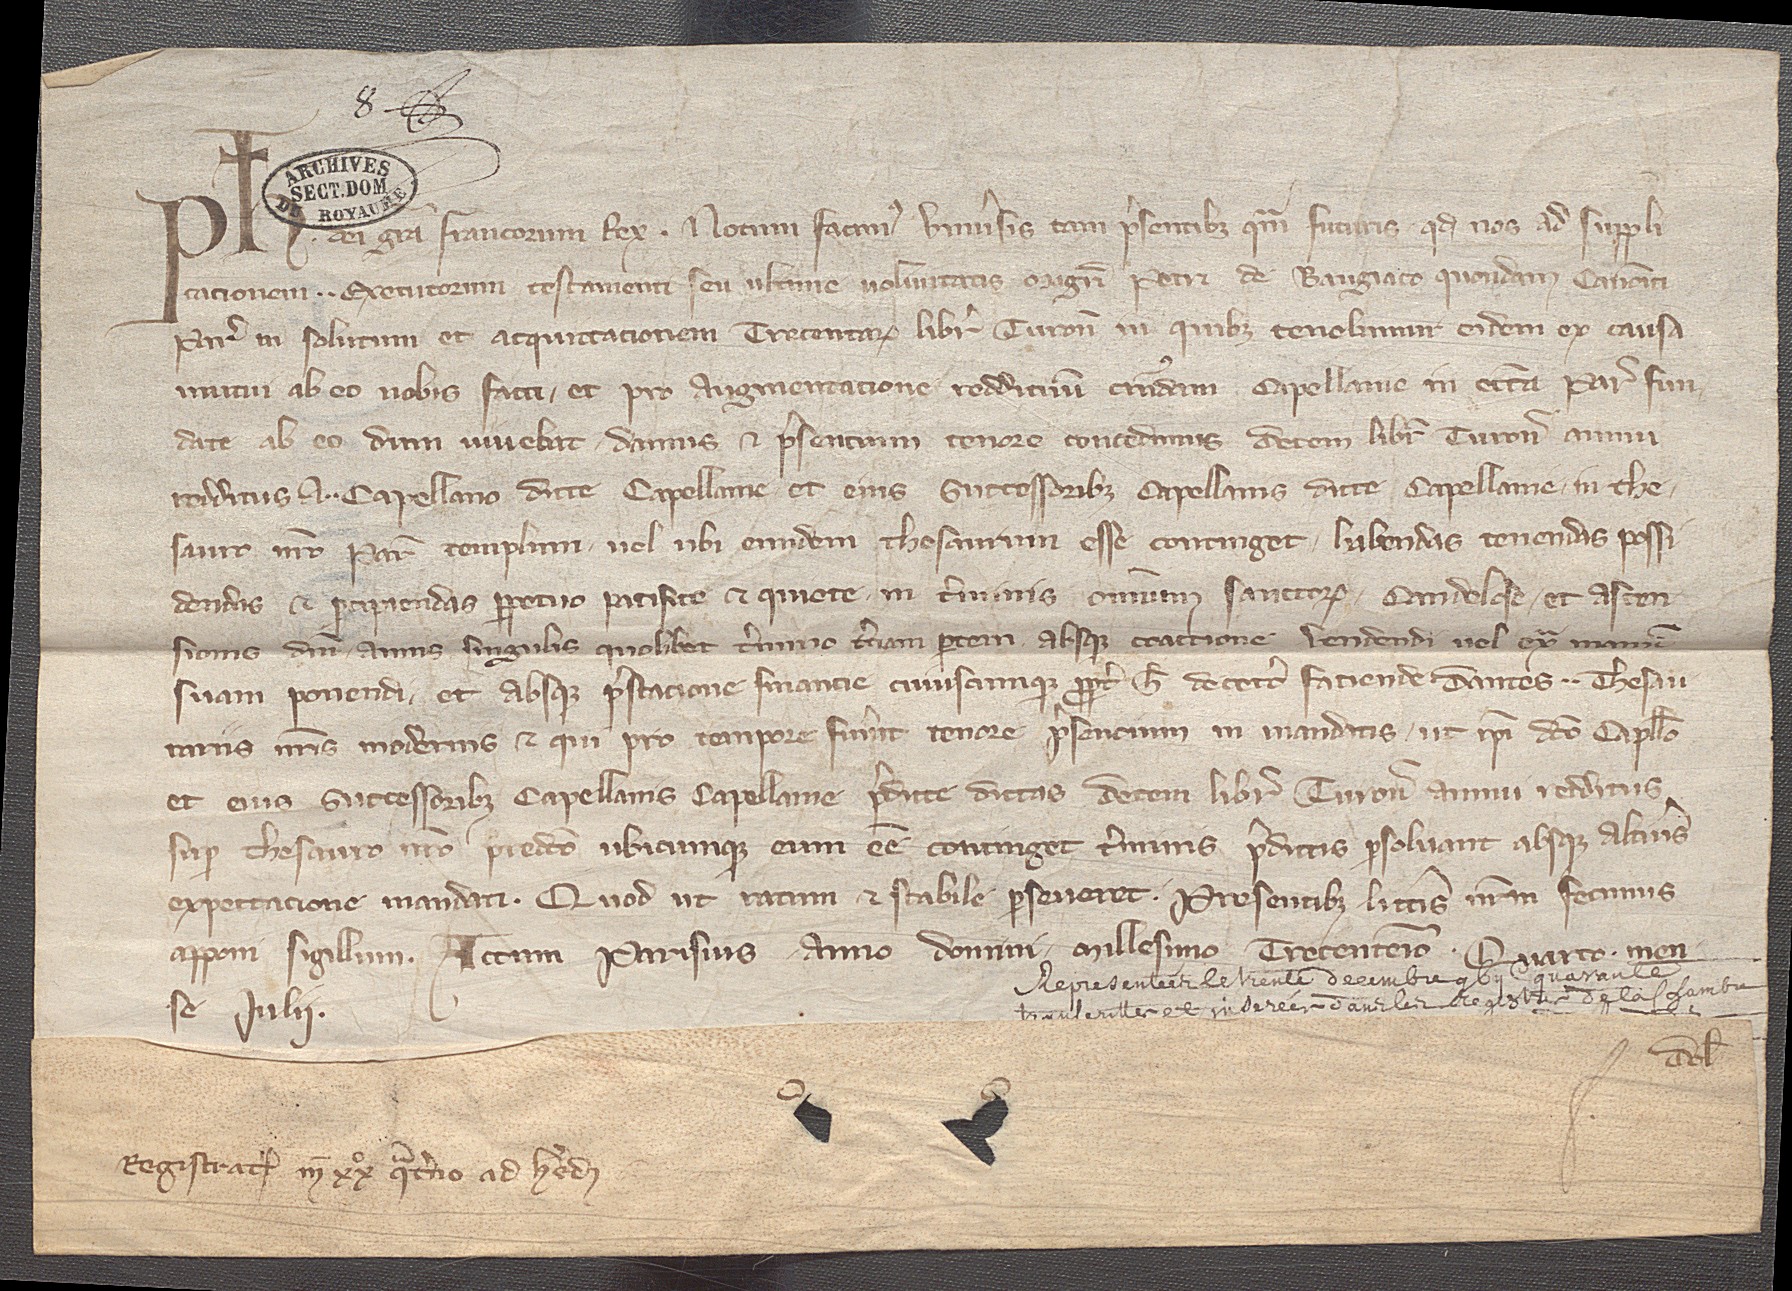 8
ARCHIVES
SECT. DOM
DU ROYAUME
Ph. dei gra francorum Rex. Notum facim9 vniusis tam psentibz qm futuris qd nos ad suppli
cationem .. Executorum testamenti seu ultime voluntatis magri Petri de Baugiaco quondam Canonici
Par in solutum et acquittacionem Trecentar libr Turon in quibz tenebamur eidem ex causa
mutui ab eo nobis facti, et pro augmentacione reddituum cuiusdam Capellanie in eccia Par fun
date ab eo dum viuebat, damus & psentium tenore concedimus decem libr Turon annui
redditus .. Capellano dicte Capellanie et eius Successoribz Capellanis dicte Capellanie in the
sauro nro Par templum, uel ubi eundem thesaurum esse continget, habendas tenendas possi
dendas & pcipiendas ppetuo pacifice & quiete, in tminis omnium sanctor, Candelose, et ascen
sionis dni, annis singulis quolibet tmino tciam ptem, absqz coactione vendendi uel ex manum
suam ponendi, et absqz pstacione financie cuiuscumqz ppt h decet faciende. Dantes .. Thesau
rariis nris modernis & qui pro tempore fuerit tenore psentium in mandatis, ut ipi dco Capllo
et eius Successoribz Capellanis Capellanie pdicte dictas decem libr Turon annui redditus
sup thesauro nro predco ubicumqz eum ee continget tminis pdictis psoluant absqz alterius
expectacione mandati. Quod ut ratum & stabile pseueret. Presentibz littis nrm fecimus
apponi sigillum. Actum Parisius Anno domini, millesimo Trecentesio Quarto. men
se Julij.
Representeer le trente decembre quarante
et insereer dans les registres de la Chambre
Registrat in xxo qterno ad hered